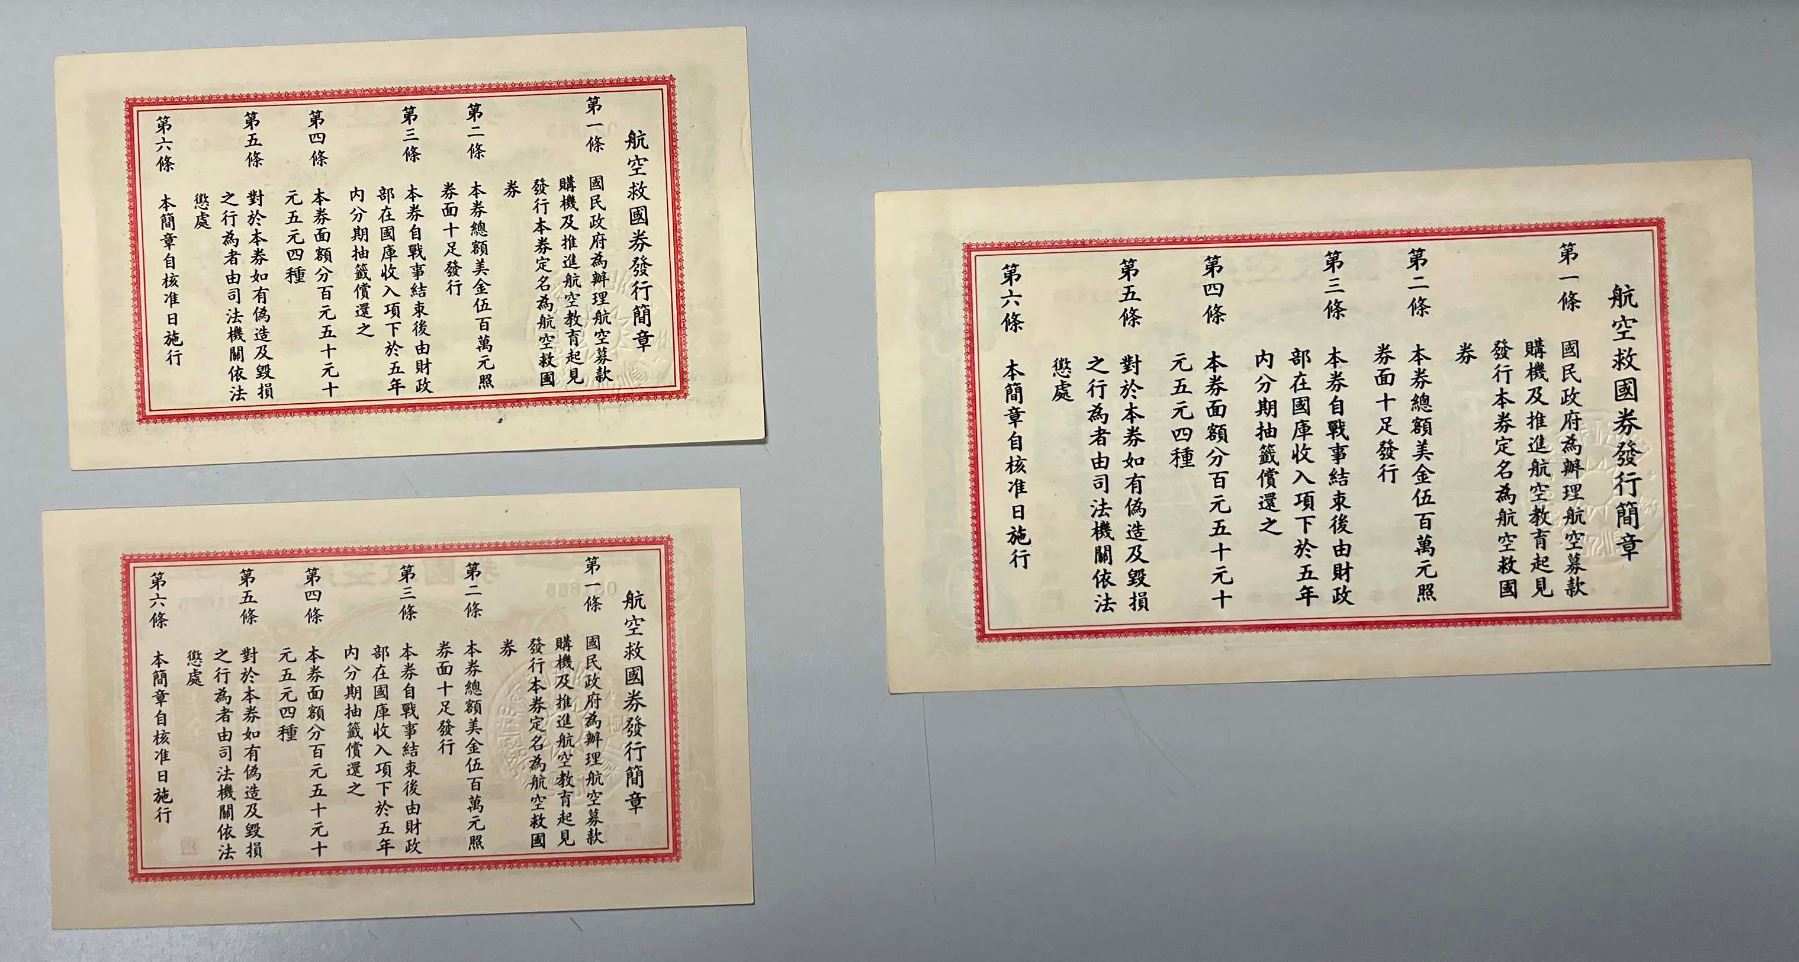 航空救國券發行簡章
第一條 國民政府為辦理航空募款
購機及推進航空教育起見
發行本券定名為航空救國
券
第二條 本券總額美金伍百萬元照
券面十足發行
第三條 本券自戰事結束後由財政
部在國庫收入項下於五年
內分期抽籤償還之
第四條 本券面額分百元五十元十
元五元四種
第五條 對於本券如有偽造及毀損
之行為者由司法機關依法
懲處
第六條 本簡章自核准日施行
航空救國券發行簡章
第一條 國民政府為辦理航空募款
購機及推進航空教育起見
發行本券定名為航空救國
券
第二條 本券總額美金伍百萬元照
券面十足發行
第三條 本券自戰事結束後由財政
部在國庫收入項下於五年
內分期抽籤償還之
第四條 本券面額分百元五十元十
元五元四種
第五條 對於本券如有偽造及毀損
之行為者由司法機關依法
懲處
第六條 本簡章自核准日施行
航空救國券發行簡章
第一條 國民政府為辦理航空募款
購機及推進航空教育起見
發行本券定名為航空救國
券
第二條 本券總額美金伍百萬元照
券面十足發行
第三條 本券自戰事結束後由財政
部在國庫收入項下於五年
內分期抽籤償還之
第四條 本券面額分百元五十元十
元五元四種
第五條 對於本券如有偽造及毀損
之行為者由司法機關依法
懲處
第六條 本簡章自核准日施行